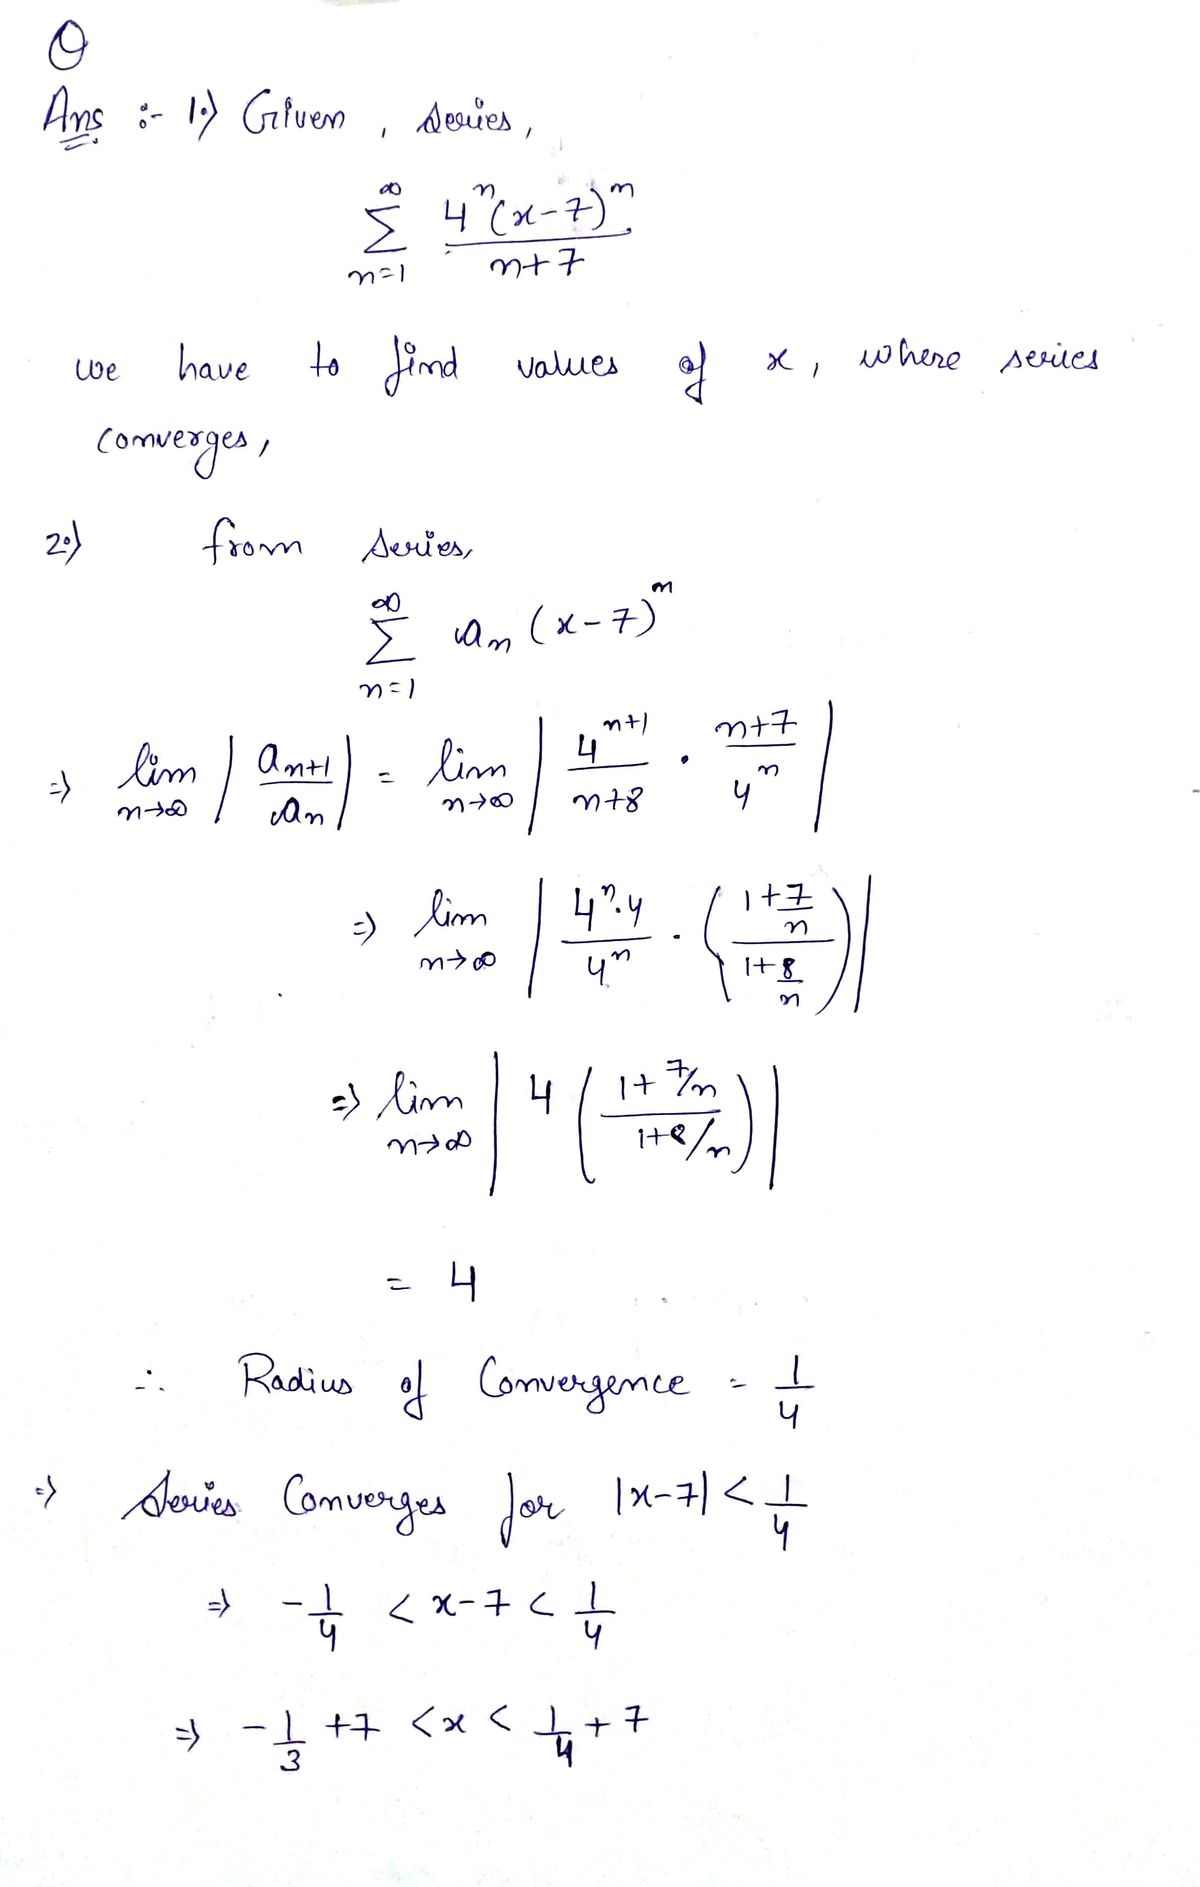 Q
Ans :- 1.) Given , series,
∞
∑ 4^n (x-7)^n / n+7
n=1
we have to find values of x, where series
converges,
2.) from series,
∞
∑ a_n (x-7)^n
n=1
=> lim n→∞ | a_n+1 / a_n | = lim n→∞ | 4^n+1 / n+8 . n+7 / 4^n |
=> lim n→∞ | 4^n.4 / 4^n . ( 1+7/n / 1+8/n ) |
=> lim n→∞ | 4 ( 1+7/n / 1+8/n ) |
= 4
∴ Radius of Convergence = 1/4
=> Series Converges for |x-7| < 1/4
=> -1/4 < x-7 < 1/4
=> -1/3 +7 < x < 1/4 + 7